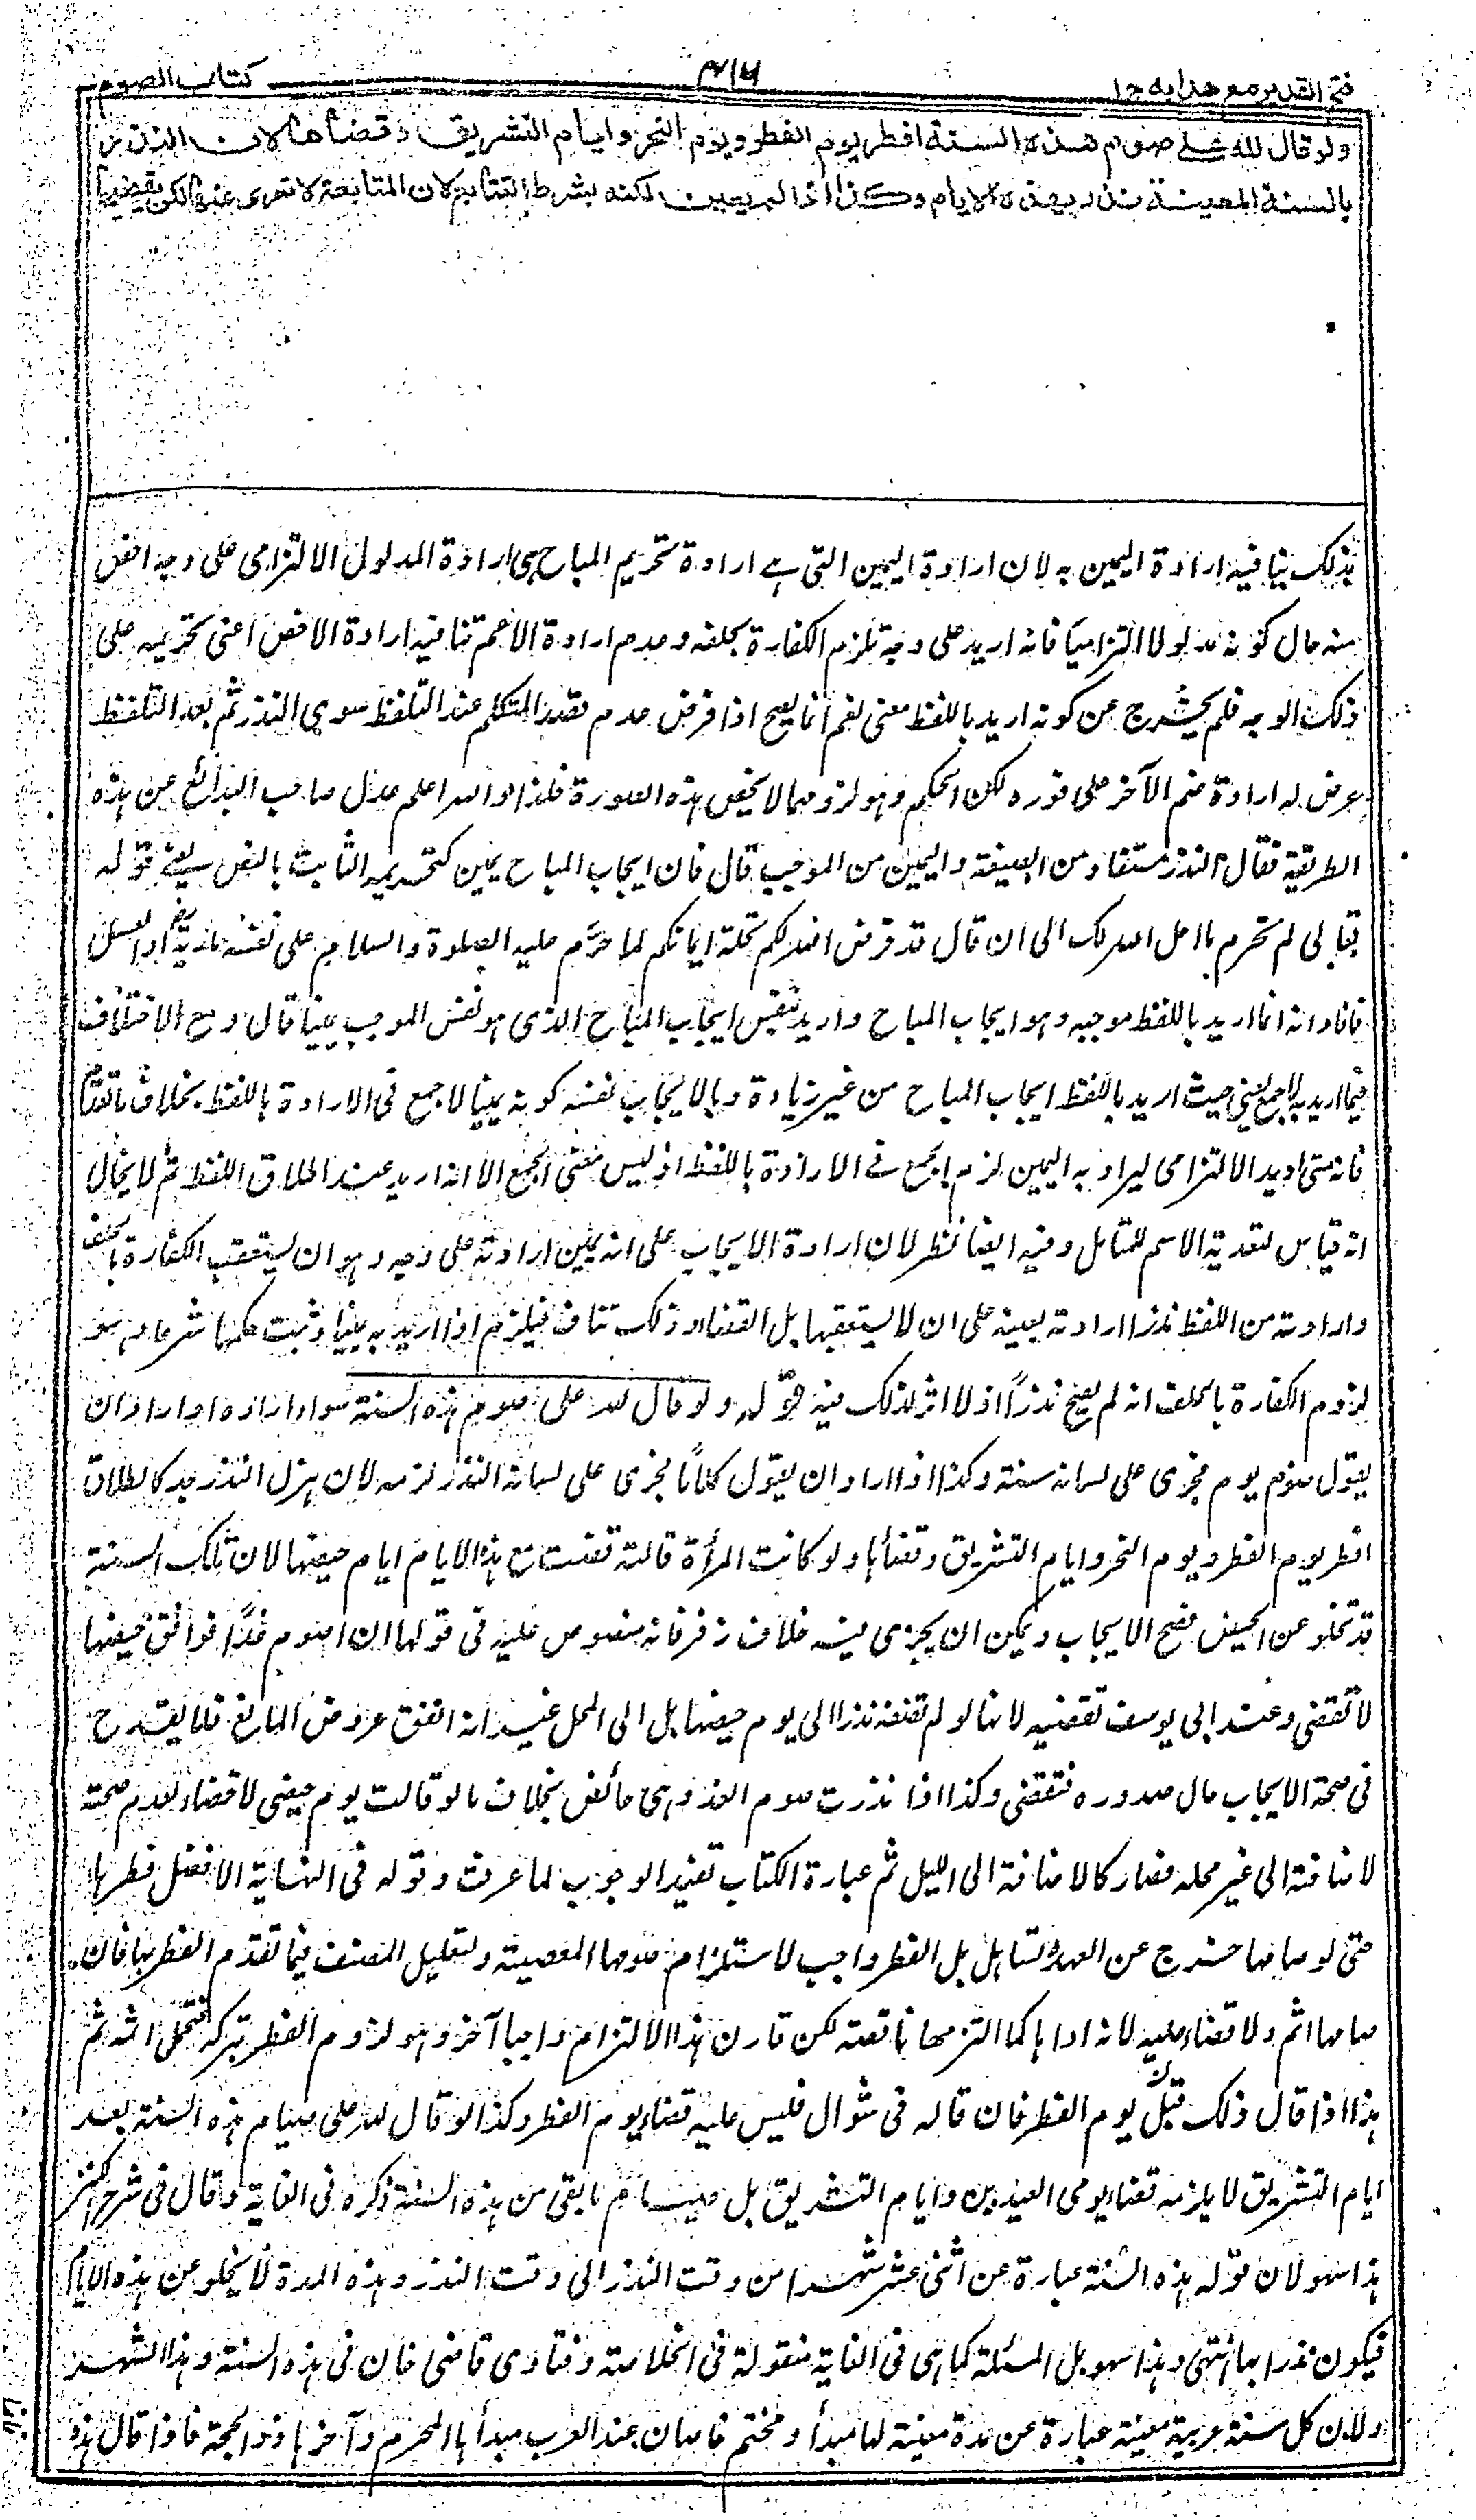 فتح القدير مع هدايه ج١
٣١٦
كتاب الصوم
ولو قال لله على صوم هذه السنة افطر يوم الفطر ويوم النحر وايام التشريق وقضاها لان النذر
بالسنة المعينة نذر بهذه الايام وكذا اذا لم يعين لكنه بشرط التتابع لان المتابعة لا تعرى عنها لكن يقضيها
بذلك ينافيه ارادة اليمين به لان ارادة اليمين التى هے ارادة تحريم المباح هى ارادة المدلول الالتزامى على وجه اخص
منه حال كونه مدلولا التزاميا فانه اريد على وجه تلزم الكفارة بخلفه وعدم ارادة الاعم تنافيه ارادة الاخص اعنى تحريمه على
ذلك الوجه فلم يخرج عن كونه اريد باللفظ معنى نعم انما يصح اذا فرض عدم قصد المتكلم عند التلفظ سوى النذر ثم بعد التلفظ
عرض له ارادة ضم الآخر على فوره لكن الحكم وهو لزومهما لا يخص هذه الصورة فلذا والله اعلم عدل صاحب البدائع عن هذه
الطريقة فقال النذر مستفاد من الصيغة واليمين من الموجب قال فان ايجاب المباح يمين كتحريمه الثابت بالنص يعنے قوله
تعالى لم تحرم ما احل الله لك الى ان قال قد فرض الله لكم تحلة ايمانكم لما حرّم عليه الصلوة والسلام على نفسه مارية رض او العسل
فافاد انه انما اريد باللفظ موجبه وهو ايجاب المباح واريد بنفس ايجاب المباح الذى هو نفس الموجب يمينا قال ومع الاختلاف
فيما اريد به لا جمع يعنى حيث اريد باللفظ ايجاب المباح من غير زيادة وبالايجاب نفسه كونه يمينا لا جمع فى الارادة باللفظ بخلاف ما تقدم
فانه متى اريد الالتزامى ليراد به اليمين لزم الجمع فے الارادة باللفظ اذ ليس معنى الجمع الا انه اريد عند اطلاق اللفظ ثم لا يخال
انه قياس لتعدية الاسم للتأمل وفيه ايضا نظر لان ارادة الايجاب على انه يمين ارادته على وجه وهو ان يستعقب الكفارة بالخلف
وارادته من اللفظ نذرا ارادته بعينه على ان لا يستعقبها بل القضاء وذلك تناف فيلزم اذا اريد به يمينا وثبت حكمها شرعا وهو
لزوم الكفارة بالخلف انه لم يصح نذرا اذ لا اثر لذلك فيه قوله ولو قال لله على صوم هذه السنة سواء اراده او اراد ان
يقول صوم يوم فجرى على لسانه سنة وكذا اذا اراد ان يقول كلاما فجرى على لسانه النذر لزمه لان هزل النذر جد كالطلاق
افطر يوم الفطر ويوم النحر وايام التشريق وقضاها ولو كانت المرأة قالته قضت مع هذه الايام ايام حيضها لان تلك السنة
قد تخلو عن الحيض فصح الايجاب ويمكن ان يجرى فيه خلاف زفر فانه منصوص عليه فى قولها ان اصوم غدا فوافق حيضها
لا تقضى وعند ابى يوسف تقضيه لانها لو لم تضفه نذرا الى يوم حيضها بل الى المحل غير انه اتفق عروض المانع فلا يقدح
فى صحة الايجاب حال صدوره فتقضى وكذا اذا نذرت صوم الغد وهى حائض بخلاف ما لو قالت يوم حيضى لا قضاء لعدم صحته
لاضافته الى غير محله فصار كالاضافة الى الليل ثم عبارة الكتاب تفيد الوجوب لما عرفت وقوله فى النهاية الافضل فطرها
حتى لو صامها خرج عن العهدة تساهل بل الفطر واجب لاستلزام صومها المعصية ولتعليل المصنف فيما تقدم الفطر بها فان
صامها اثم ولا قضاء عليه لانه اداها كما التزمها ناقصة لكن قارن هذا الالتزام واجبا آخر وهو لزوم الفطر تركه فتحمل اثمه ثم
هذا اذا قال ذلك قبل يوم الفطر فان قاله فى شوال فليس عليه قضاء يوم الفطر وكذا لو قال لله على صيام هذه السنة بعد
ايام التشريق لا يلزمه قضاء يومى العيدين وايام التشريق بل صيام ما بقى من هذه السنة ذكره فى الغاية وقال فى شرح الكنز
هذا سهو لان قوله هذه السنة عبارة عن اثنى عشر شهرا من وقت النذر الى وقت النذر وهذه المدة لا يخلو عن هذه الايام
فيكون نذرا بها انتهى وهذا سهو بل المسئلة كما هى فى الغاية منقولة فى الخلاصة وفتاوى قاضى خان فى هذه السنة وهذا الشهر
ولان كل سنة عربية معينة عبارة عن مدة معينة لها مبدأ ومختم خاصان عند العرب مبدأها المحرم وآخرها ذو الحجة فاذا قال هذه